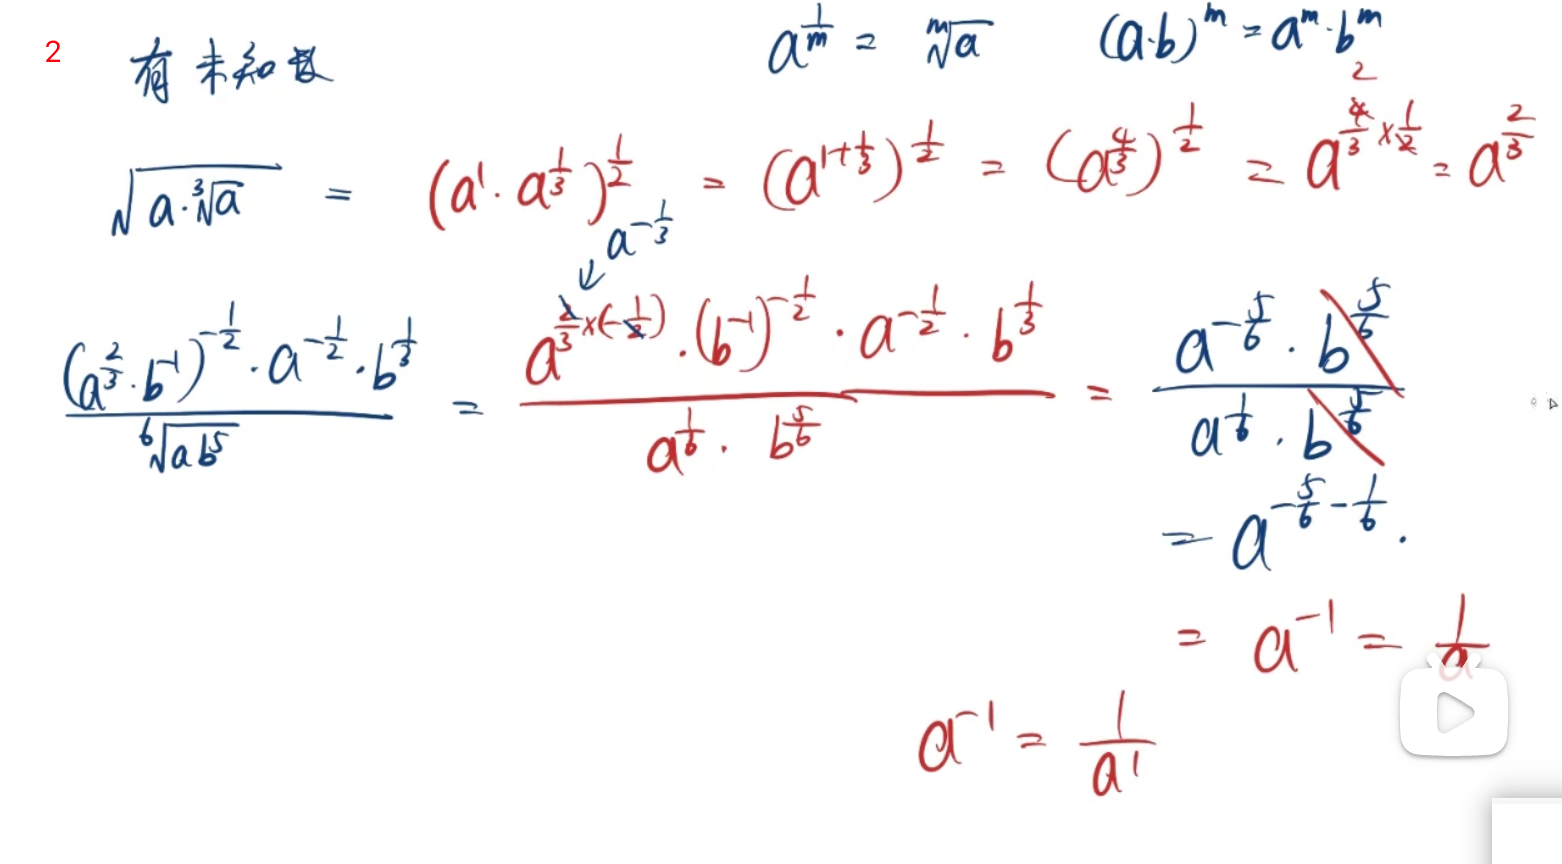 2 有未知数 a^{\frac{1}{m}} = \sqrt[m]{a} (a·b)^m = a^m·b^m
\sqrt{a·\sqrt[3]{a}} = (a^1·a^{\frac{1}{3}})^{\frac{1}{2}} = (a^{1+\frac{1}{3}})^{\frac{1}{2}} = (a^{\frac{4}{3}})^{\frac{1}{2}} = a^{\frac{4}{3}×\frac{1}{2}} = a^{\frac{2}{3}}
2
a^{-\frac{1}{3}}
↙
\frac{(a^{\frac{2}{3}}·b^{-1})^{-\frac{1}{2}}·a^{-\frac{1}{2}}·b^{\frac{1}{3}}}{\sqrt[6]{ab^5}} = \frac{a^{\frac{2}{3}×(-\frac{1}{2})}·(b^{-1})^{-\frac{1}{2}}·a^{-\frac{1}{2}}·b^{\frac{1}{3}}}{a^{\frac{1}{6}}·b^{\frac{5}{6}}} = \frac{a^{-\frac{5}{6}}·b^{\frac{5}{6}}}{a^{\frac{1}{6}}·b^{\frac{5}{6}}}
= a^{-\frac{5}{6}-\frac{1}{6}}·
= a^{-1} = \frac{1}{a}
a^{-1} = \frac{1}{a^1}